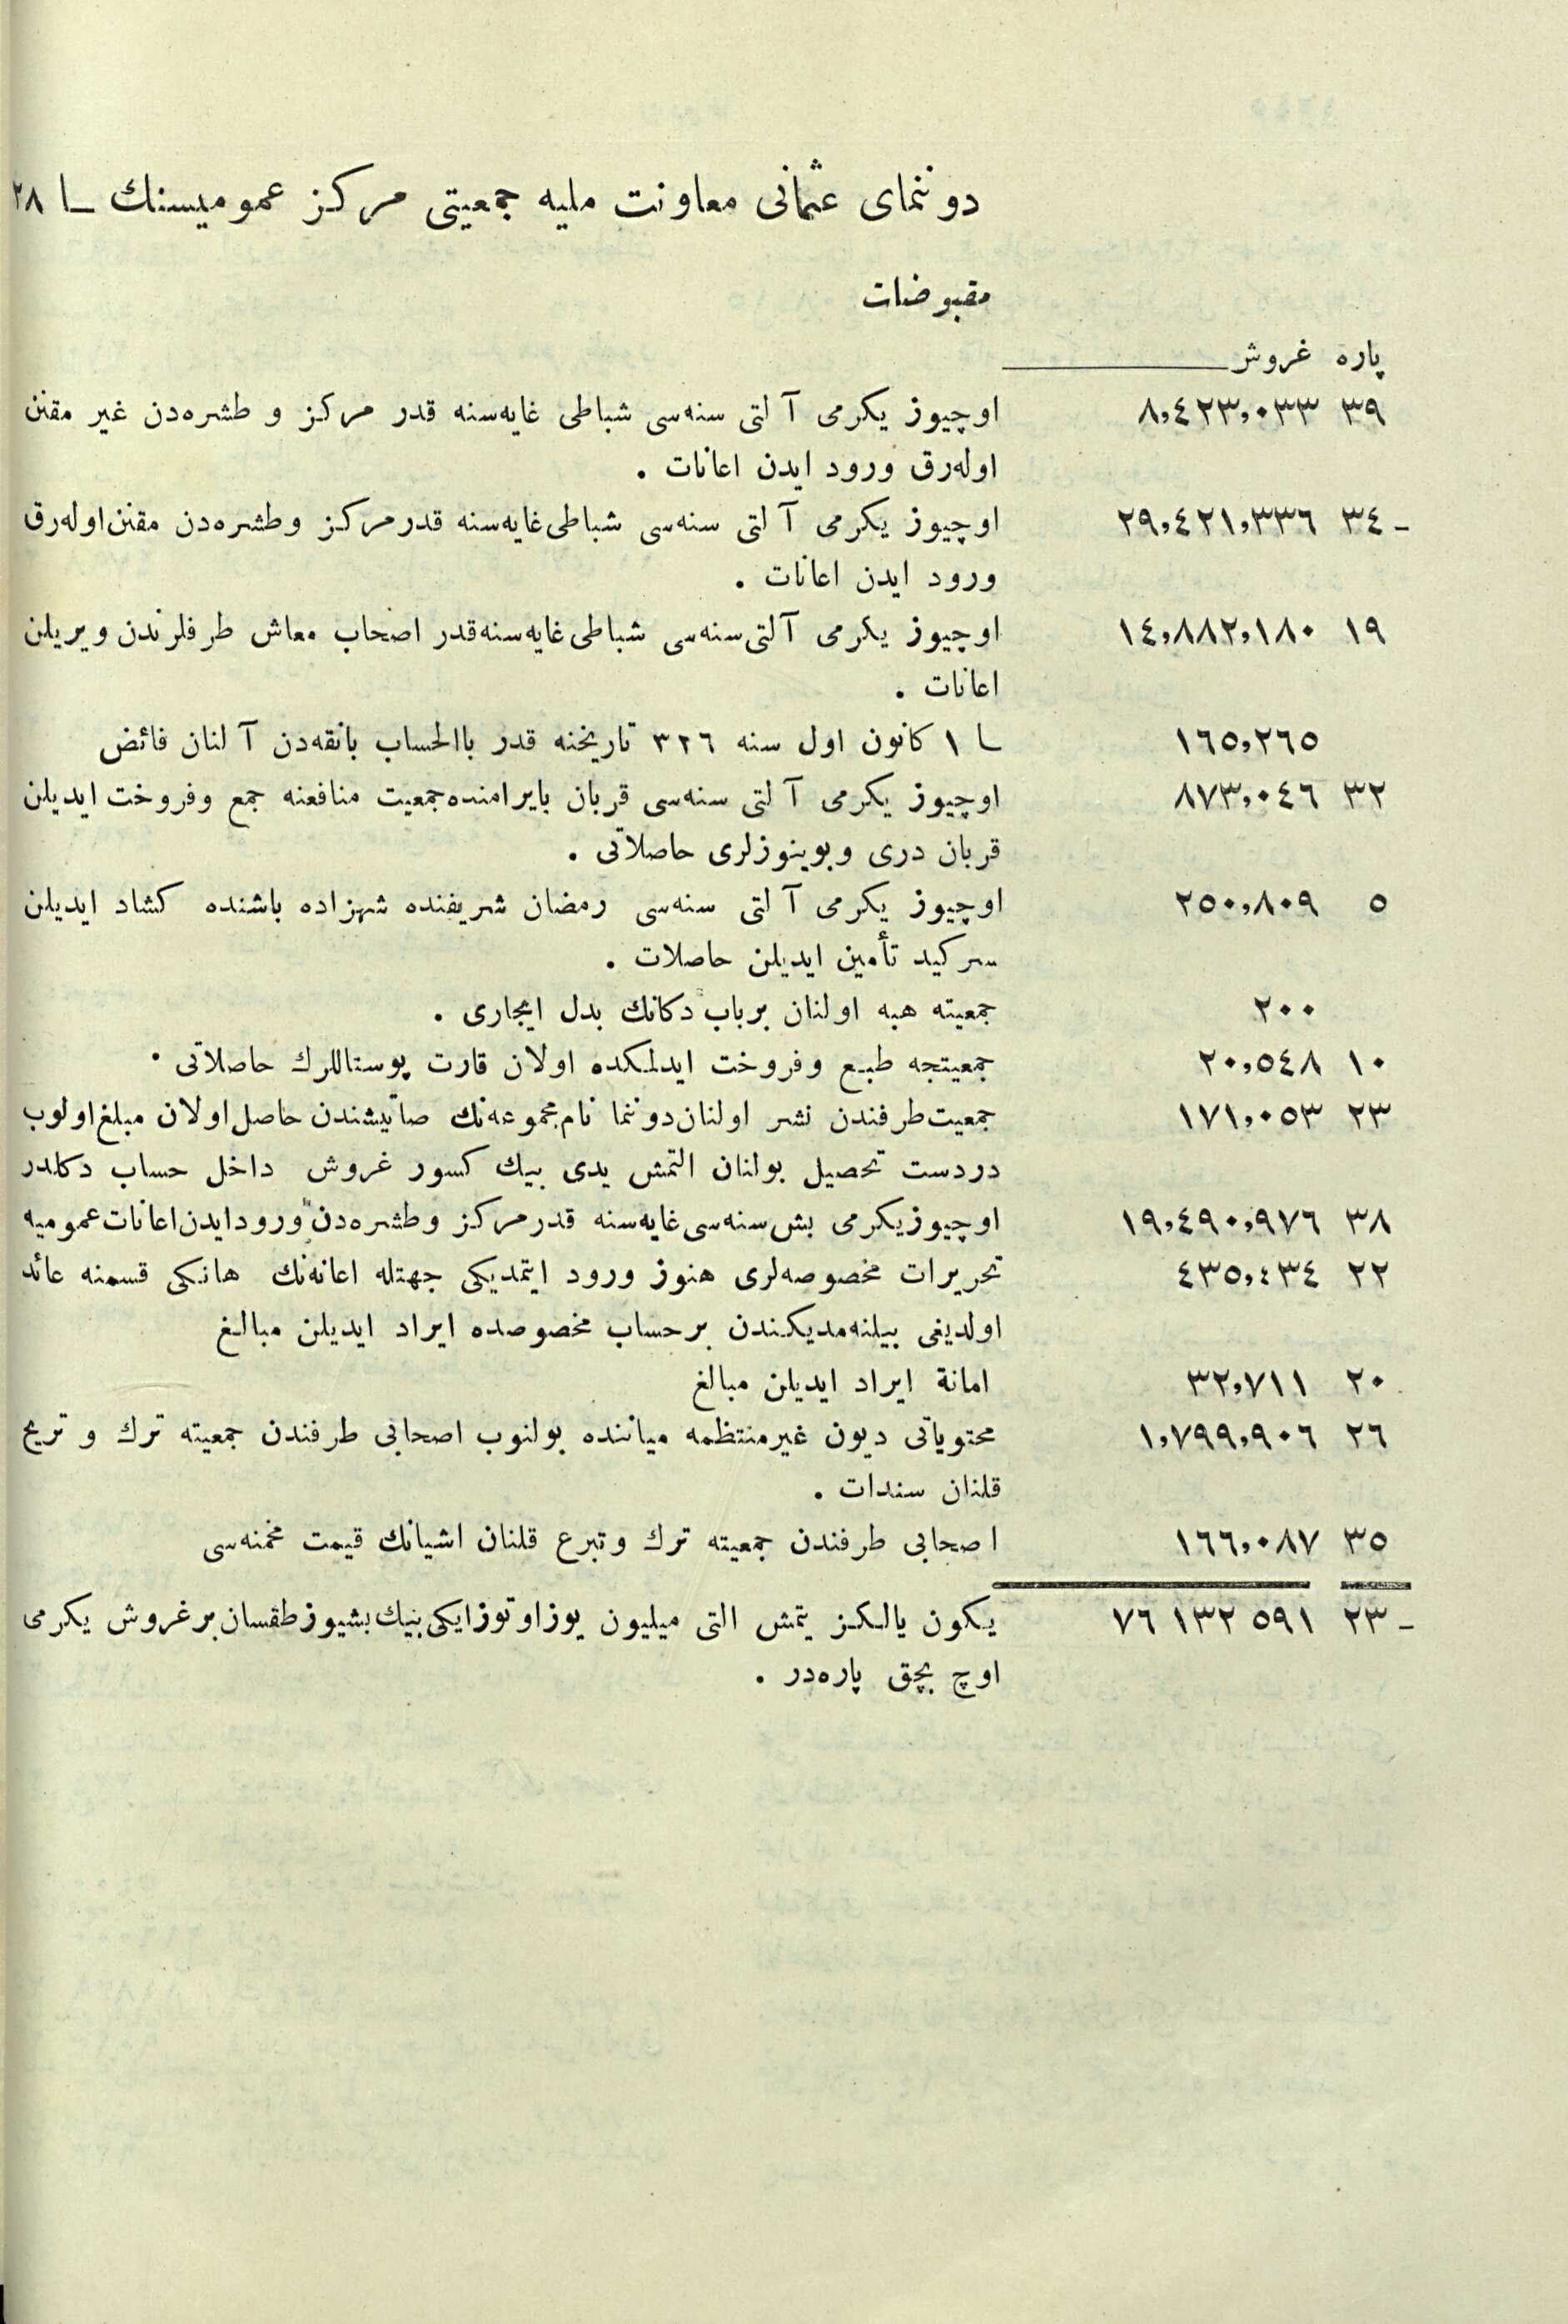 دوننمای عثمانی معاونت ملیه جمعیتی مركز عمومیسنك ــا ٢٨
مقبوضات
پاره غروش
٣٩ ٨,٤٢٣,٠٣٣ اوچیوز یكرمی آلتی سنه‌سی شباطی غایه‌سنه قدر مركز و طشره‌دن غیر مقنن
اوله‌رق ورود ایدن اعانات .
ـ ٣٤ ٢٩,٤٢١,٣٣٦ اوچیوز یكرمی آلتی سنه‌سی شباطی غایه‌سنه قدر مركز و طشره‌دن مقنن اوله‌رق
ورود ایدن اعانات .
١٩ ١٤,٨٨٢,١٨٠ اوچیوز یكرمی آلتی سنه‌سی شباطی غایه‌سنه قدر اصحاب معاش طرفلرندن ویریلن
اعانات .
١٦٥,٢٦٥ ــا ١ كانون اول سنه ٣٢٦ تاریخنه قدر باالحساب بانقه‌دن آلنان فائض
٣٢ ٨٧٣,٠٤٦ اوچیوز یكرمی آلتی سنه‌سی قربان بایرامنده جمعیت منافعنه جمع و فروخت ایدیلن
قربان دری و بوینوزلری حاصلاتی .
٥ ٢٥٠,٨٠٩ اوچیوز یكرمی آلتی سنه‌سی رمضان شریفنده شهزاده باشنده كشاد ایدیلن
سركید تأمین ایدیلن حاصلات .
٢٠٠ جمعیته هبه اولنان برباب دكانك بدل ایجاری .
١٠ ٢٠,٥٤٨ جمعیتجه طبع و فروخت ایدلمكده اولان قارت پوستاللرك حاصلاتی .
٢٣ ١٧١,٠٥٣ جمعیت طرفندن نشر اولنان دوننما نام مجموعه‌نك صاتیشندن حاصل اولان مبلغ اولوب
دردست تحصیل بولنان التمش یدی بیك كسور غروش داخل حساب دكلدر
٣٨ ١٩,٤٩٠,٩٧٦ اوچیوز یكرمی بش سنه‌سی غایه‌سنه قدر مركز و طشره‌دن ورود ایدن اعانات عمومیه
٢٢ ٤٣٥,٤٣٤ تحریرات مخصوصه‌لری هنوز ورود ایتمدیكی جهتله اعانه‌نك هانكی قسمنه عائد
اولدیغی بیلنه‌مدیكندن بر حساب مخصوصده ایراد ایدیلن مبالغ
٢٠ ٣٢,٧١١ امانة ایراد ایدیلن مبالغ
٢٦ ١,٧٩٩,٩٠٦ محتویاتی دیون غیر منتظمه میاننده بولنوب اصحابی طرفندن جمعیته ترك و تریح
قلنان سندات .
٣٥ ١٦٦,٠٨٧ اصحابی طرفندن جمعیته ترك و تبرع قلنان اشیانك قیمت مخمنه‌سی
ـ ٢٣ ٧٦ ١٣٢ ٥٩١ یكون یالكز یتمش التی میلیون یوز اوتوز ایكی بیك بشیوز طقسان بر غروش یكرمی
اوچ بچق پاره‌در .